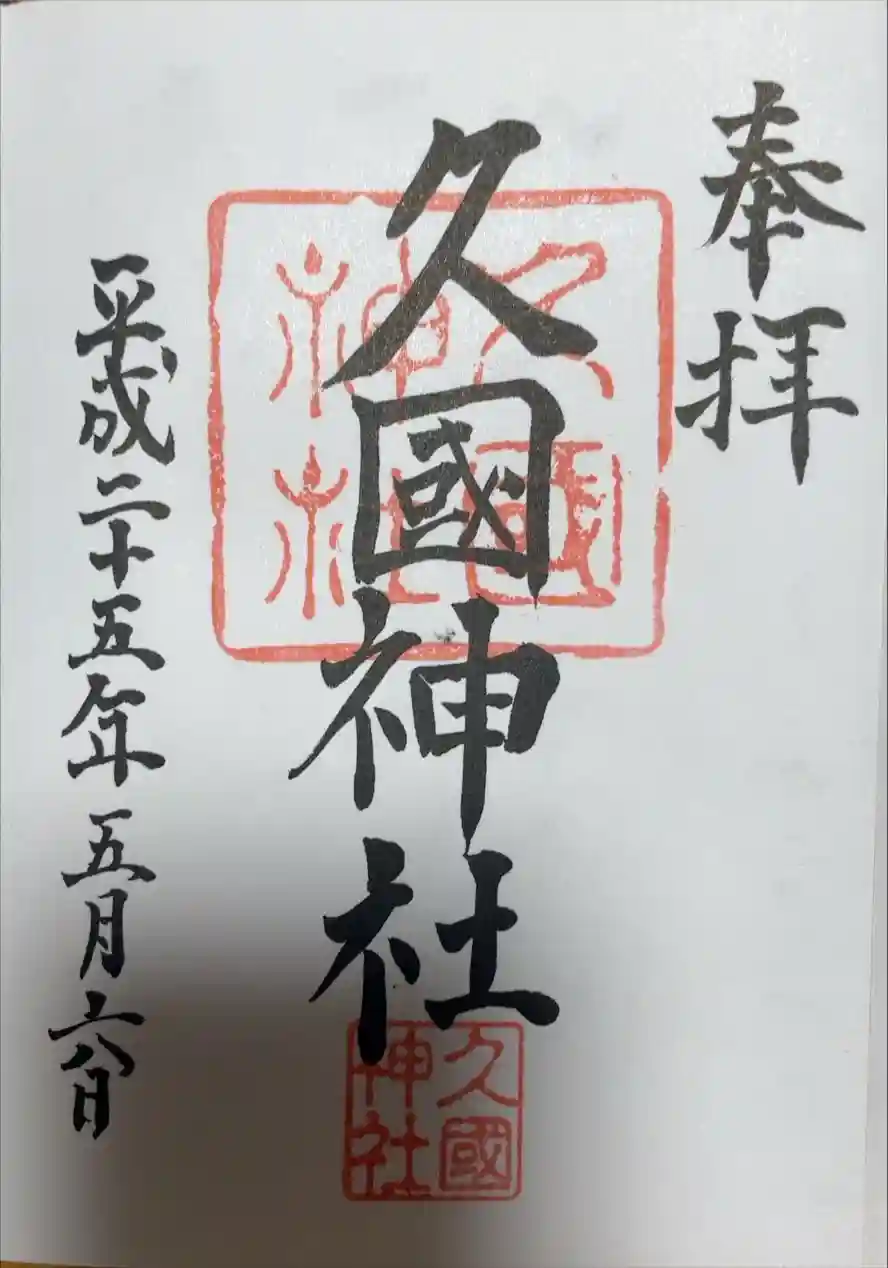 奉拝
久國神社
久國
神社
平成二十五年五月六日
久國
神社